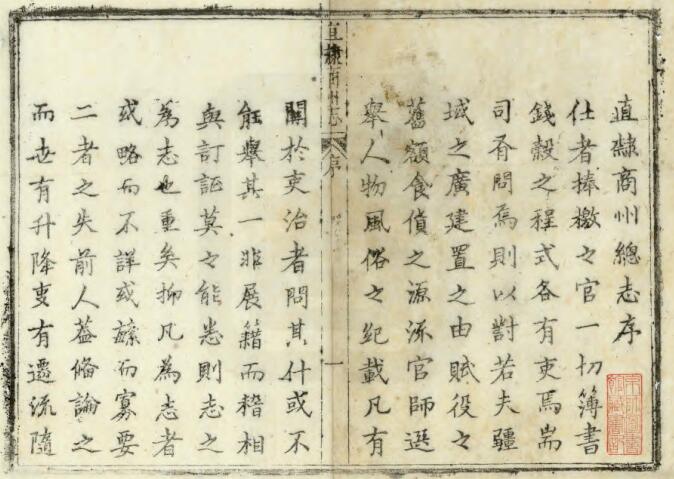 直隸商州總志序
仕者捧檄之官一切簿書
錢穀之程式各有吏焉耑
司胥問焉則以對若夫疆
域之廣建置之由賦役之
舊額食貨之源流官師選
舉人物風俗之紀載凡有
直隸商州志 序 一
關於吏治者問其什或不
能舉其一非展籍而稽相
與訂証莫之能悉則志之
為志也重矣抑凡為志者
或略而不詳或繁而寡要
二者之失前人葢俻論之
而世有升降事有遷流隨